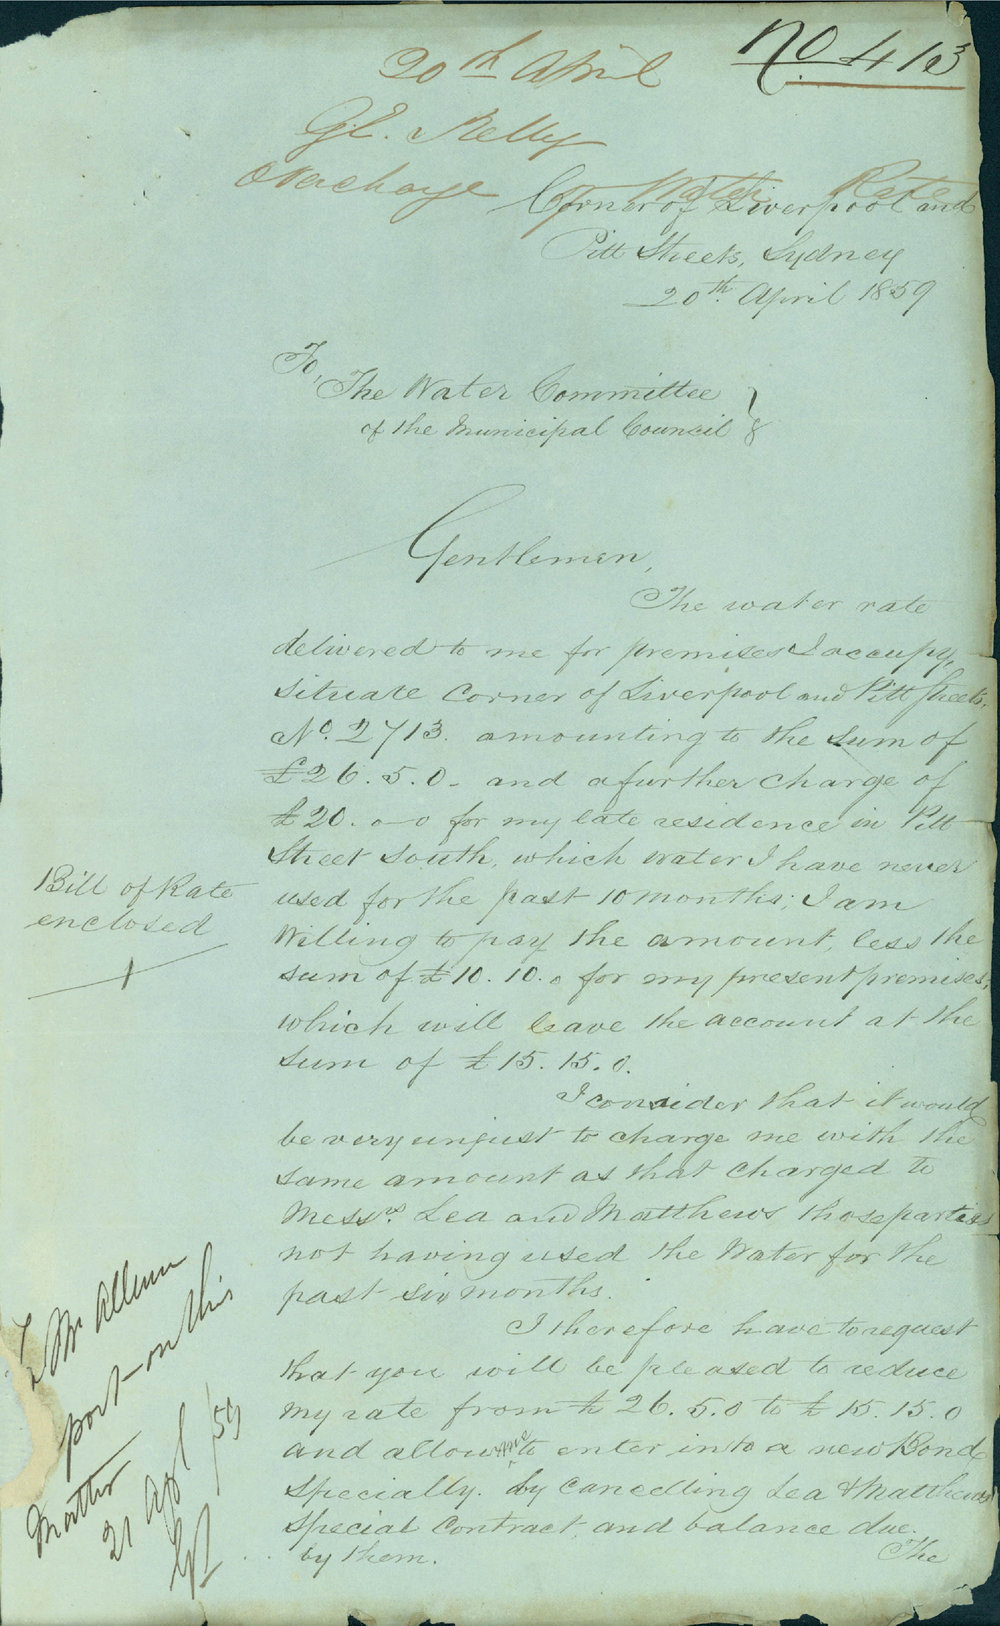 No 413
20th April
G. E. Kelly
Overcharge of Water Rate
Corner of Liverpool and
Pitt Streets, Sydney
20th. April 1859
To,
The Water Committee
of the Municipal Council
Gentlemen,
The water rate
delivered to me for premises I occupy,
situate corner of Liverpool and Pitt Streets,
No. 2713. amounting to the sum of
£26. 5. 0. and a further charge of
£20. 0-0 for my late residence in Pitt
Street South, which water I have never
used for the past 10 months; I am
Willing to pay the amount, less the
sum of £10. 10. 0 for my present premises,
which will leave the account at the
sum of £15. 15. 0.
Bill of Rate
enclosed
1
I consider that it would
be very unjust to charge me with the
same amount as that charged to
Messrs. Lea and Matthews those parties
not having used the Water for the
past six months.
I therefore have to request
that you will be pleased to reduce
my rate from £26. 5. 0 to £15. 15. 0
and allow me to enter into a new Bond
Specially. by cancelling Lea & Matthews
Special Contract, and balance due.
by them.
The
Mr
port on this
Matter
21 Apl /59